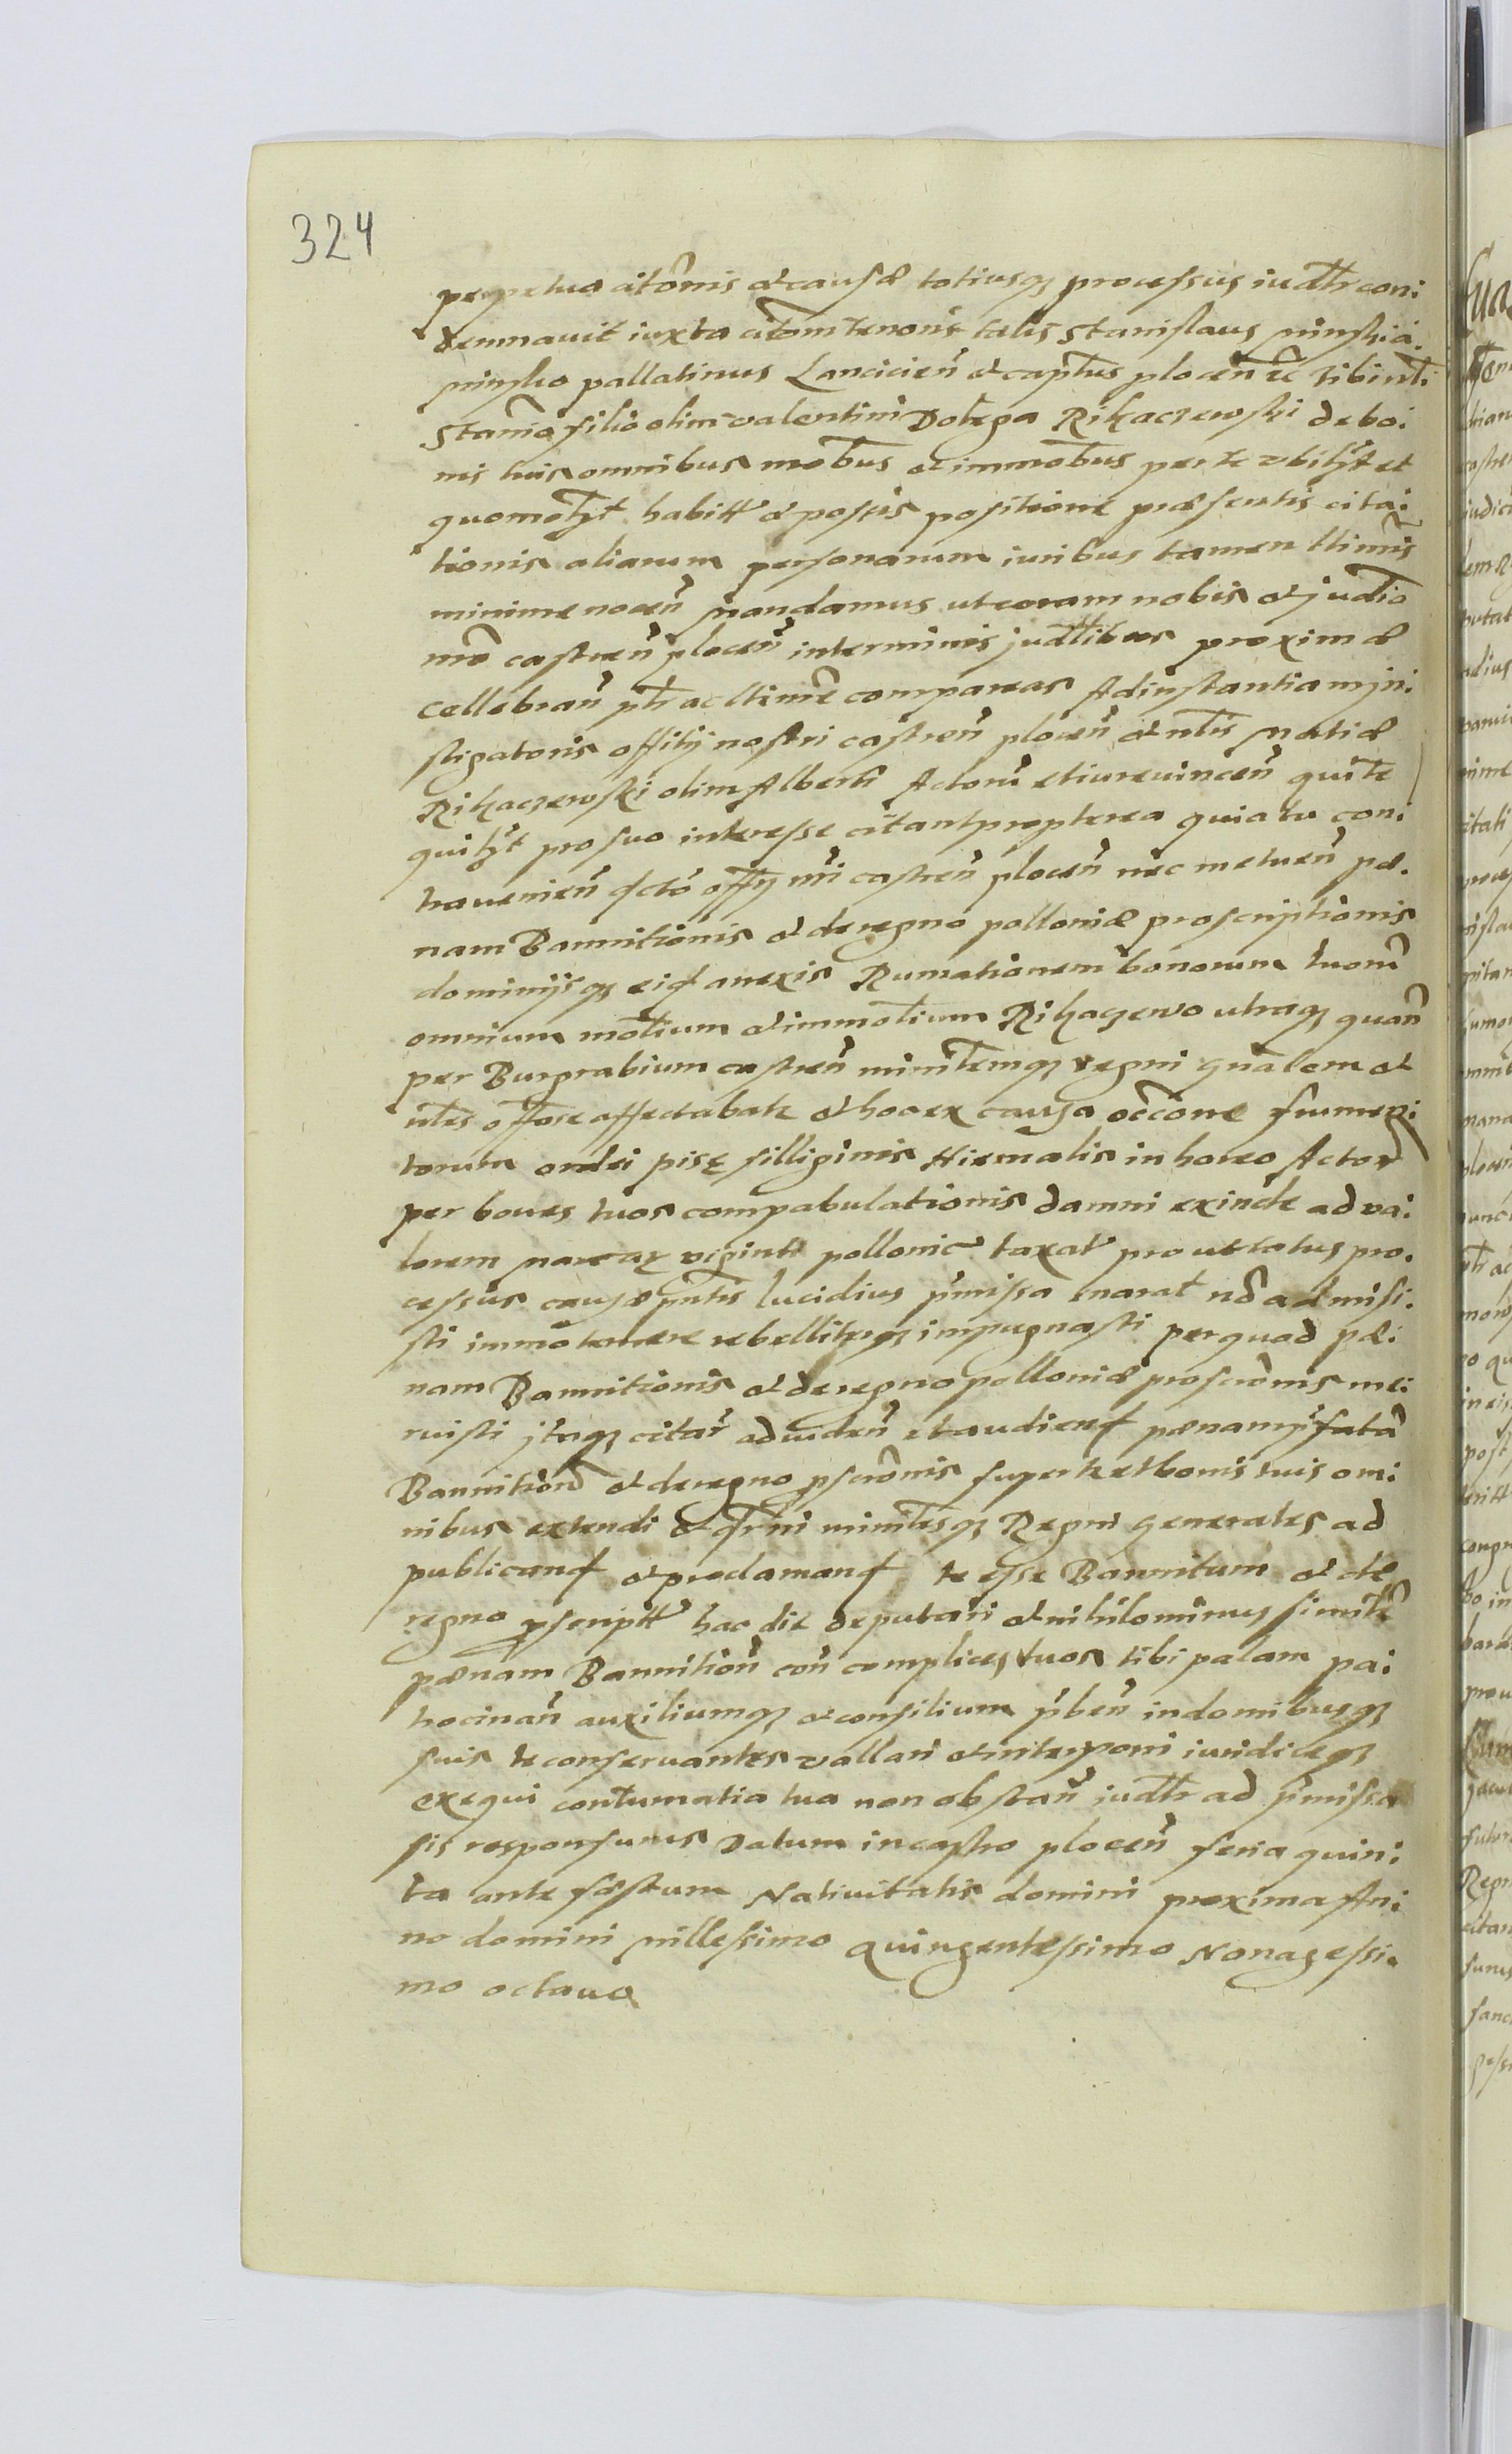 324
perpetua citõnis et causæ totiusq; processus iudtr con:
demnauit iuxta citom tenoris talis Stanislaus Minski à
Minsko pallatinus Lancicien̄ et capts plocen̄ ec̄ tibi ntl:
Stanio filio olim valentini Dolega Rikaczewski de bo:
nis tuis omnibus mobus et immobus per te vbilzt et
quomolzt habitt et possis positione præsentis cita:
tionis aliarum personarum iuribus tamen ltimis
minime nocen̄ Mandamus ut coram nobis et judio
nro castren̄ plocen̄ in terminis judtlibus proximæ
cellebran̄ ptr ac ltime compareas Ad instantiam jn:
stigatoris offitij nostri castren̄ plocen̄ et ntlis Matiæ
Rikaczewski olim Alberti Actoru et iurevincen̄ qui te
quilzt pro suo interesse citant propterea quia tu con:
traueniен̄ dcto offy nri castren̄ plocen̄ nec metuen̄ pæ:
nam Bannitionis et de regno polloniæ proscriptionis
dominijsq; eid anexis Rumationem bonorum tuoru
omnium motium et immotium Rikaczewo utraq; quan̄
per Burgrabium castren̄ ministemq; regni gnalem et
ntles offose affectabate et hoc ex causa occone frumen:
torum ordei pise silliginis Hiemalis in horeo Actor
per boues tuos compabulationis damni exinde ad va:
lorem marcar viginti pollonic taxat prout totus pro:
cessus causæ pntis lucidius pmissa enarat nō admisi:
sti immo temere rebelliterq; impugnasti per quod pæ:
nam Bannitionis et de regno polloniæ proscrōnis me:
ruisti jtaq; citar ad viden̄ et audiend pænam pfatā
Bannition et de regno pscrōnis super te et bonis tuis om:
nibus extendi et dcrni ministesq; Regni generales ad
publicand et proclamand te esse Bannitum et de
regno pscriptt hac die deputari et nihilominus similr
pænam Bannition̄ con̄ complices tuos tibi palam pa:
trocinan̄ auxiliumq; et consilium pben̄ in domibusq;
suis te conseruantes vallari et interponi iuridiceq;
exequi contumatia tua non obstan̄ iudtr ad pmissa
sis responsurus Datum in castro plocen̄ feria quin:
ta ante fæstum Natiuitatis domini proxima An:
no domini millessimo quingentessimo Nonagessi:
mo octauo